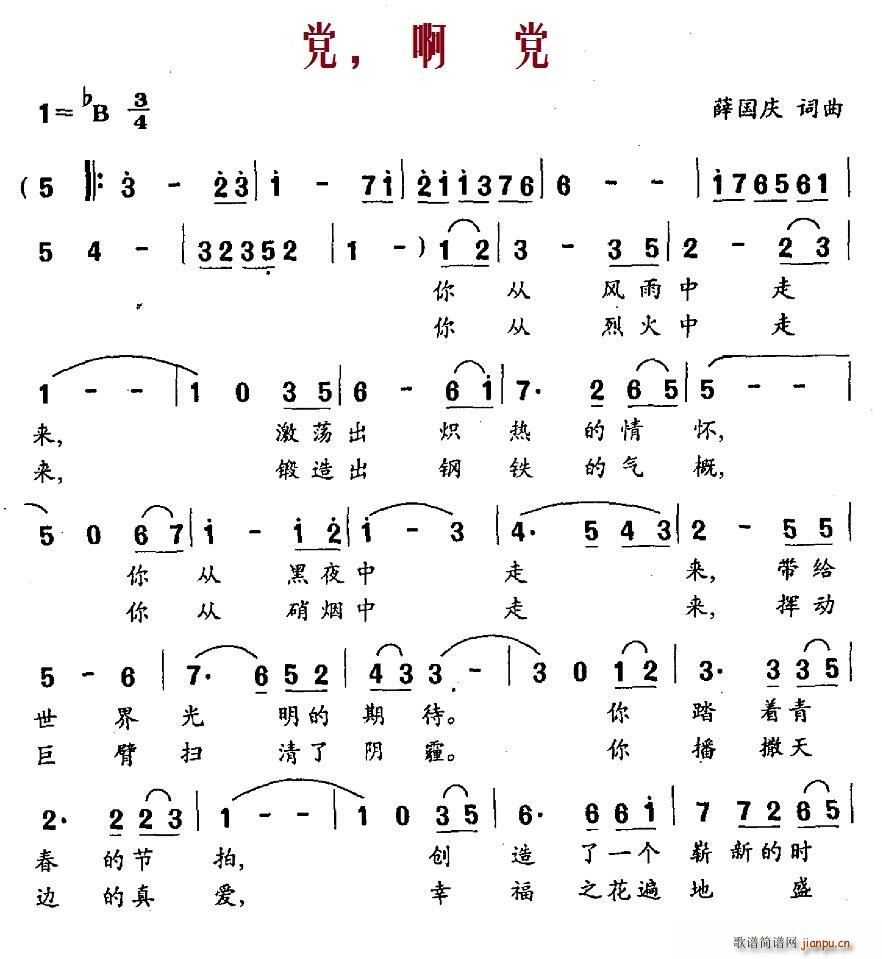 党，啊 党
1=♭B 3/4
薛国庆 词曲
(5 ‖: 3 - 23 | 1 - 71 | 211376 | 6 - - | 176561 |
5 4 - | 32352 | 1 - ) 12 | 3 - 35 | 2 - 23 |
你 从 风雨中 走
你 从 烈火中 走
1 - - | 1 0 35 | 6 - 61 | 7· 2 65 | 5 - - |
来， 激荡出 炽热 的情怀，
来， 锻造出 钢铁 的气概，
5 0 67 | 1 - 12 | 1 - 3 | 4· 5 43 | 2 - 55 |
你 从 黑夜中 走 来，带给
你 从 硝烟中 走 来，挥动
5 - 6 | 7· 6 52 | 43 3 - | 3 0 12 | 3· 3 35 |
世 界 光 明的 期 待。 你 踏 着青
巨 臂 扫 清了 阴 霾。 你 播 撒天
2· 2 23 | 1 - - | 1 0 35 | 6· 6 61 | 7 72 65 |
春 的节 拍， 创 造 了一个 崭 新的时
边 的真 爱， 幸 福 之花遍 地 盛
歌谱简谱网 jianpu.cn